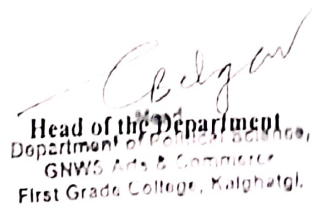 Head
Head of the Department
Department of Political Science,
GNWS Arts & Commerce
First Grade College, Kalghatgi.